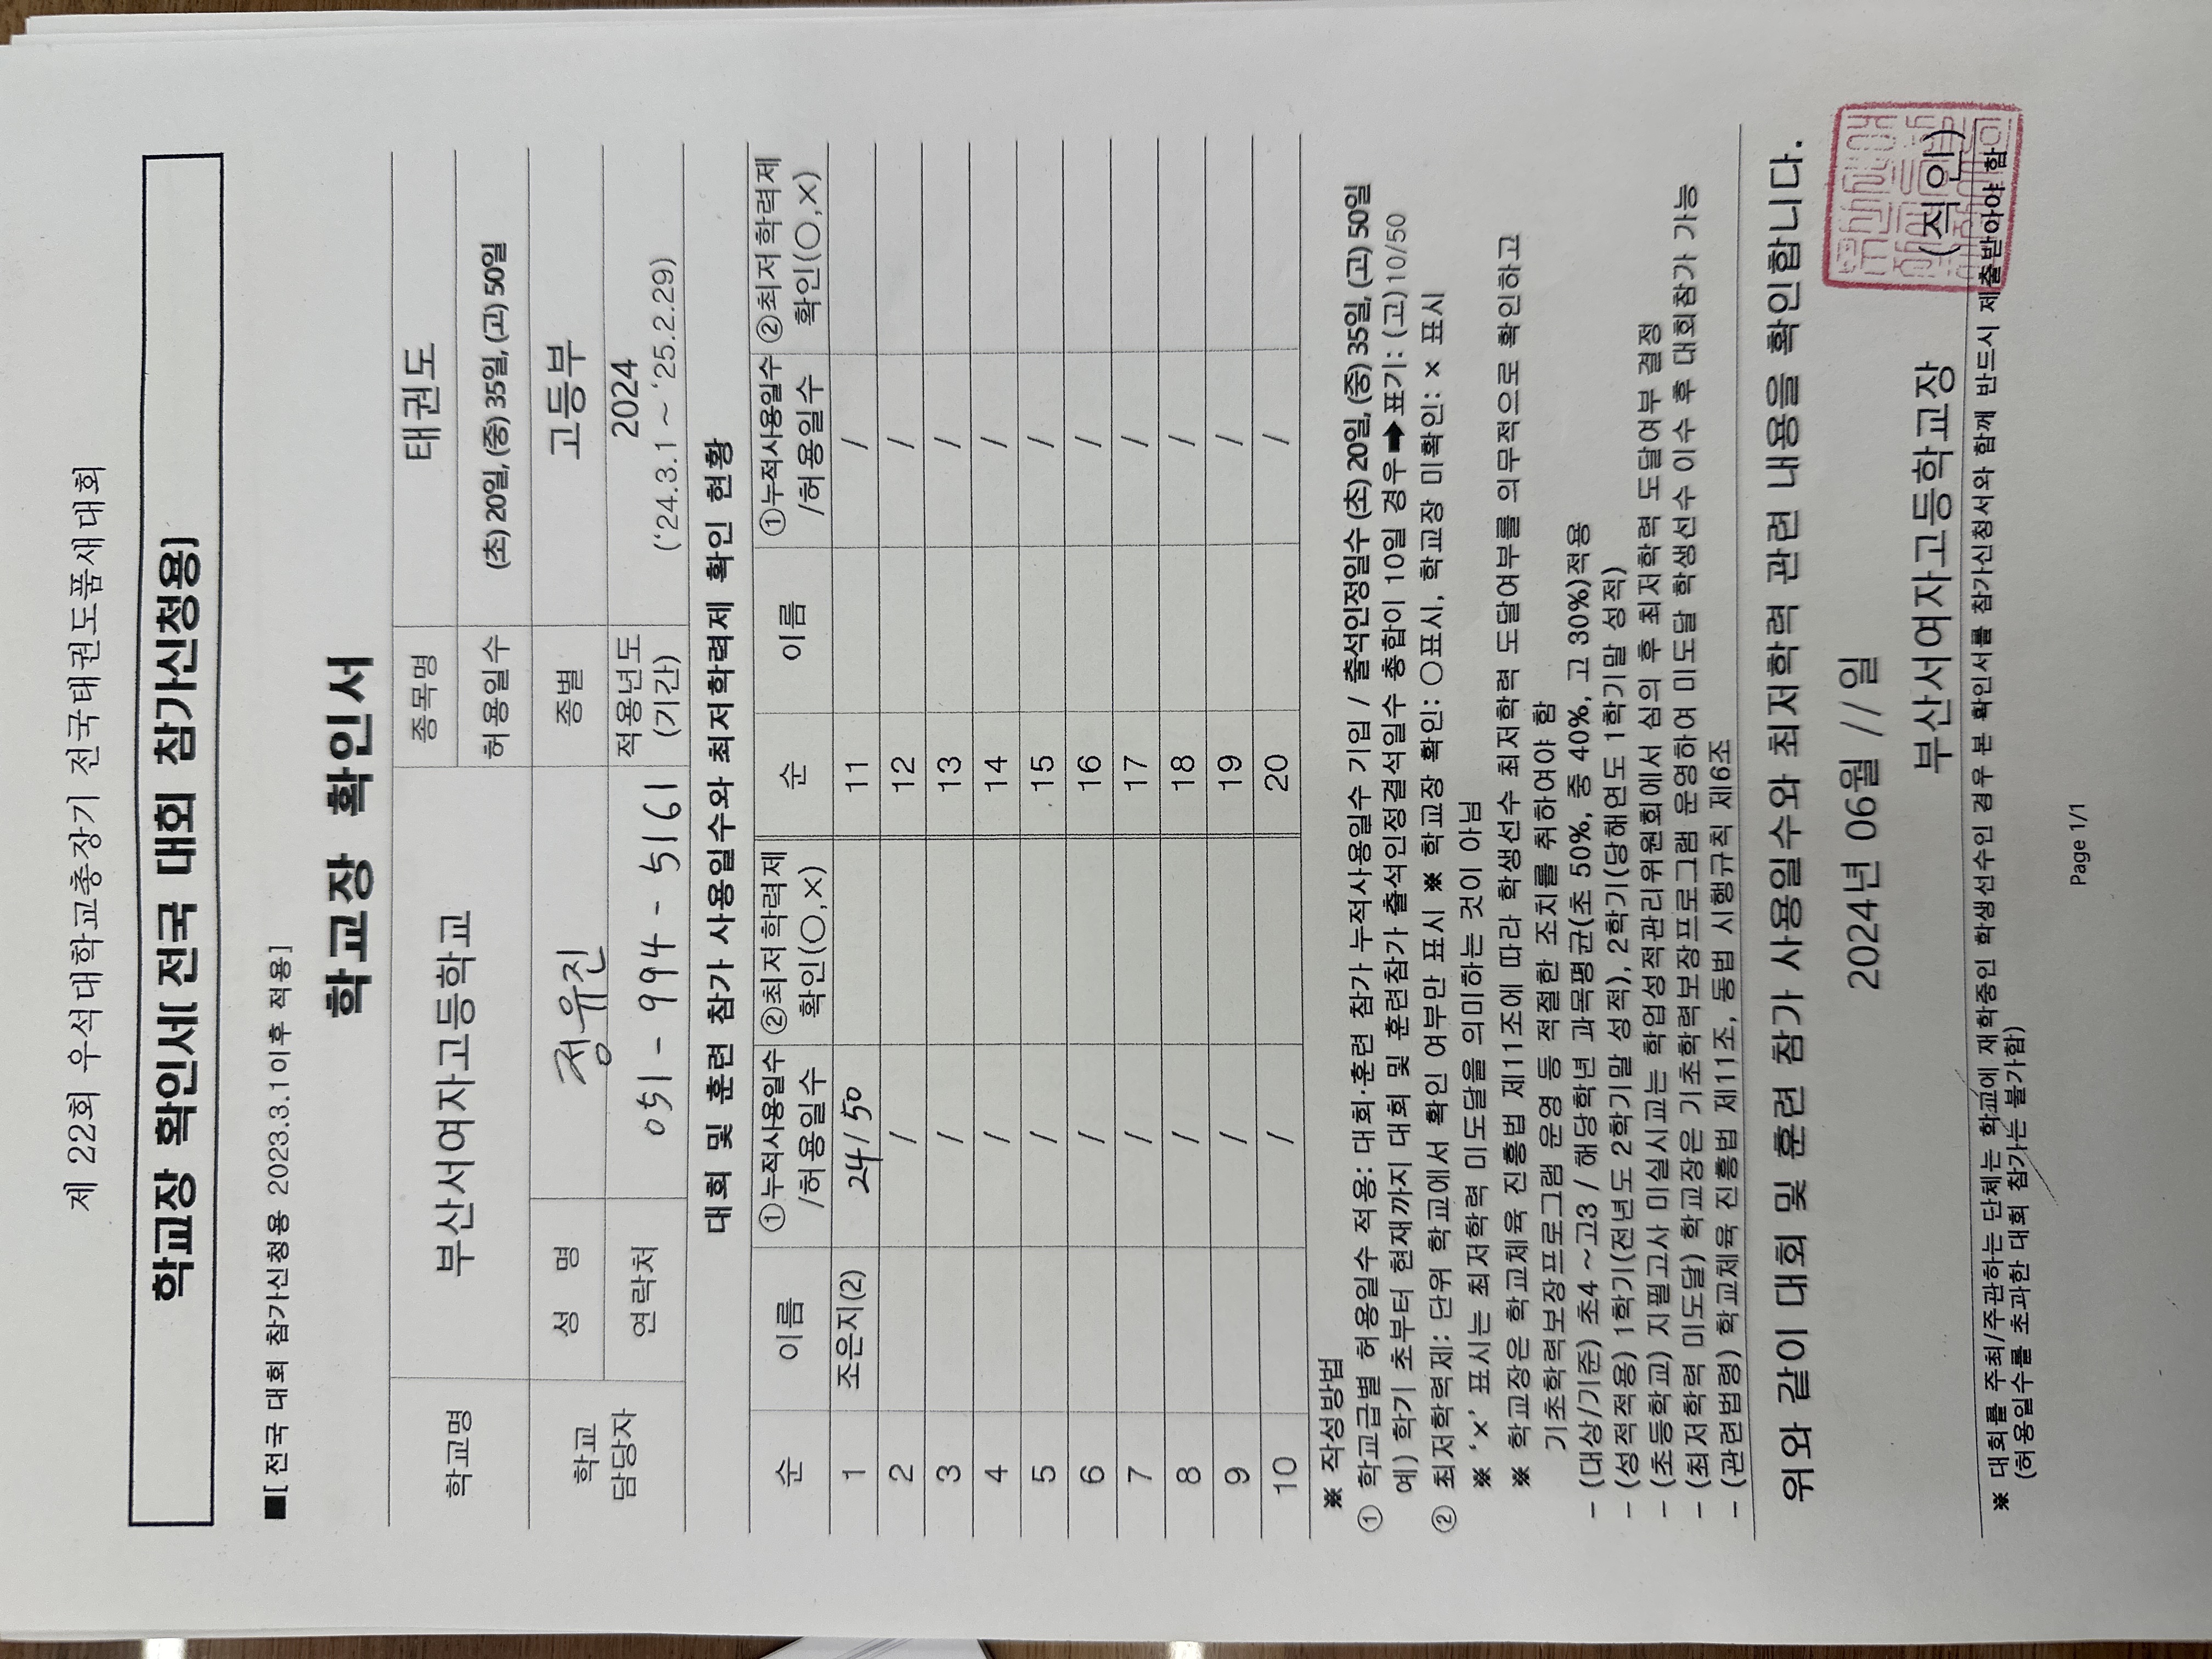 제 22회 우석대학교총장기 전국태권도품새대회
학교장 확인서[ 전국 대회 참가신청용]
■[ 전국 대회 참가신청용 2023.3.1이후 적용]
학교장 확인서
학교명 부산서여자고등학교 종목명 태권도
허용일수 (초) 20일, (중) 35일, (고) 50일
학교 담당자 성 명 정유진 종별 고등부
연락처 051-994-5161 적용년도 (기간) 2024 ('24.3.1 ~ '25.2.29)
대회 및 훈련 참가 사용일수와 최저학력제 확인 현황
순 이름 ①누적사용일수 /허용일수 ②최저학력제 확인(○,×) 순 이름 ①누적사용일수 /허용일수 ②최저학력제 확인(○,×)
1 조은지(2) 24/50 11 /
2 / 12 /
3 / 13 /
4 / 14 /
5 / 15 /
6 / 16 /
7 / 17 /
8 / 18 /
9 / 19 /
10 / 20 /
※ 작성방법
① 학교급별 허용일수 적용: 대회·훈련 참가 누적사용일수 기입 / 출석인정일수 (초) 20일, (중) 35일, (고) 50일
예) 학기 초부터 현재까지 대회 및 훈련참가 출석인정결석일수 총합이 10일 경우 ➡ 표기: (고)10/50
② 최저학력제: 단위 학교에서 확인 여부만 표시 ※ 학교장 확인: ○표시, 학교장 미확인: × 표시
※ '×' 표시는 최저학력 미도달을 의미하는 것이 아님
※ 학교장은 학교체육 진흥법 제11조에 따라 학생선수 최저학력 도달여부를 의무적으로 확인하고
기초학력보장프로그램 운영 등 적절한 조치를 취하여야 함
- (대상/기준) 초4 ~고3 / 해당학년 과목평균(초 50%, 중 40%, 고 30%)적용
- (성적적용) 1학기(전년도 2학기말 성적), 2학기(당해연도 1학기말 성적)
- (초등학교) 지필고사 미실시교는 학업성적관리위원회에서 심의 후 최저학력 도달여부 결정
- (최저학력 미도달) 학교장은 기초학력보장프로그램 운영하여 미도달 학생선수 이수 후 대회참가 가능
- (관련법령) 학교체육 진흥법 제11조, 동법 시행규칙 제6조
위와 같이 대회 및 훈련 참가 사용일수와 최저학력 관련 내용을 확인합니다.
2024년 06월 11일
부산서여자고등학교장 (직인)
※ 대회를 주최/주관하는 단체는 학교에 재학중인 학생선수인 경우 본 확인서를 참가신청서와 함께 반드시 제출받아야 함
(허용일수를 초과한 대회 참가는 불가함)
Page 1/1